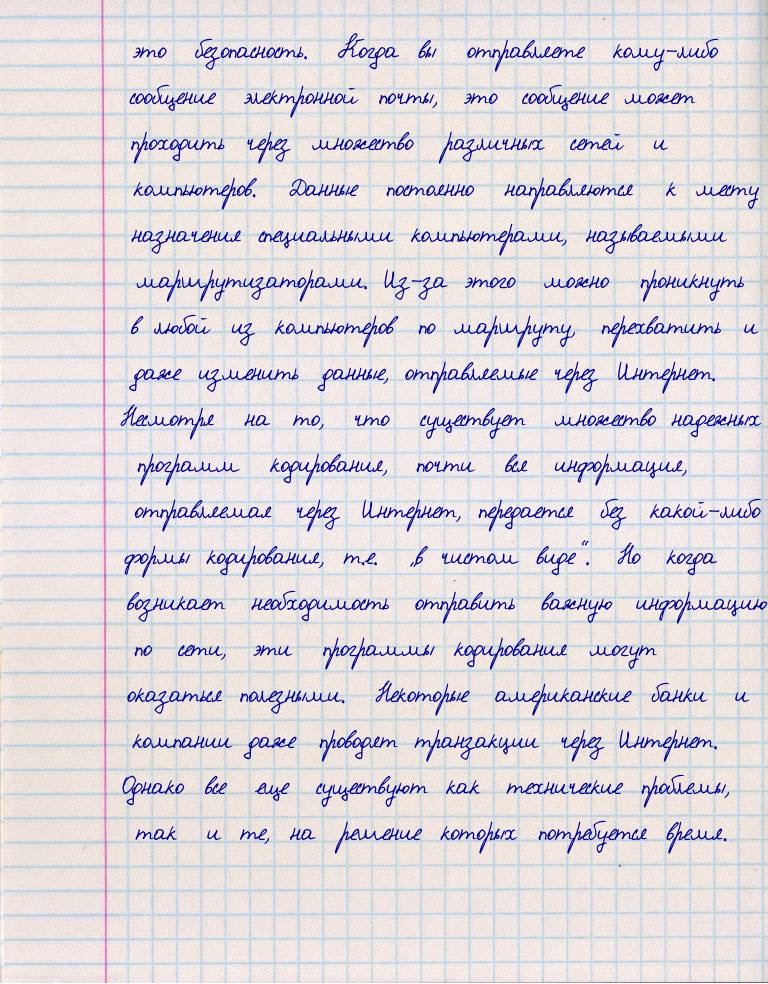 это безопасность. Когда вы отправляете кому-либо
сообщение электронной почты, это сообщение может
проходить через множество различных сетей и
компьютеров. Данные постоянно направляются к месту
назначения специальными компьютерами, называемыми
маршрутизаторами. Из-за этого можно проникнуть
в любой из компьютеров по маршруту, перехватить и
даже изменить данные, отправляемые через Интернет.
Несмотря на то, что существует множество надежных
программ кодирования, почти вся информация,
отправляемая через Интернет, передается без какой-либо
формы кодирования, т.е. „в чистом виде“. Но когда
возникает необходимость отправить важную информацию
по сети, эти программы кодирования могут
оказаться полезными. Некоторые американские банки и
компании даже проводят транзакции через Интернет.
Однако все еще существуют как технические проблемы,
так и те, на решение которых потребуется время.